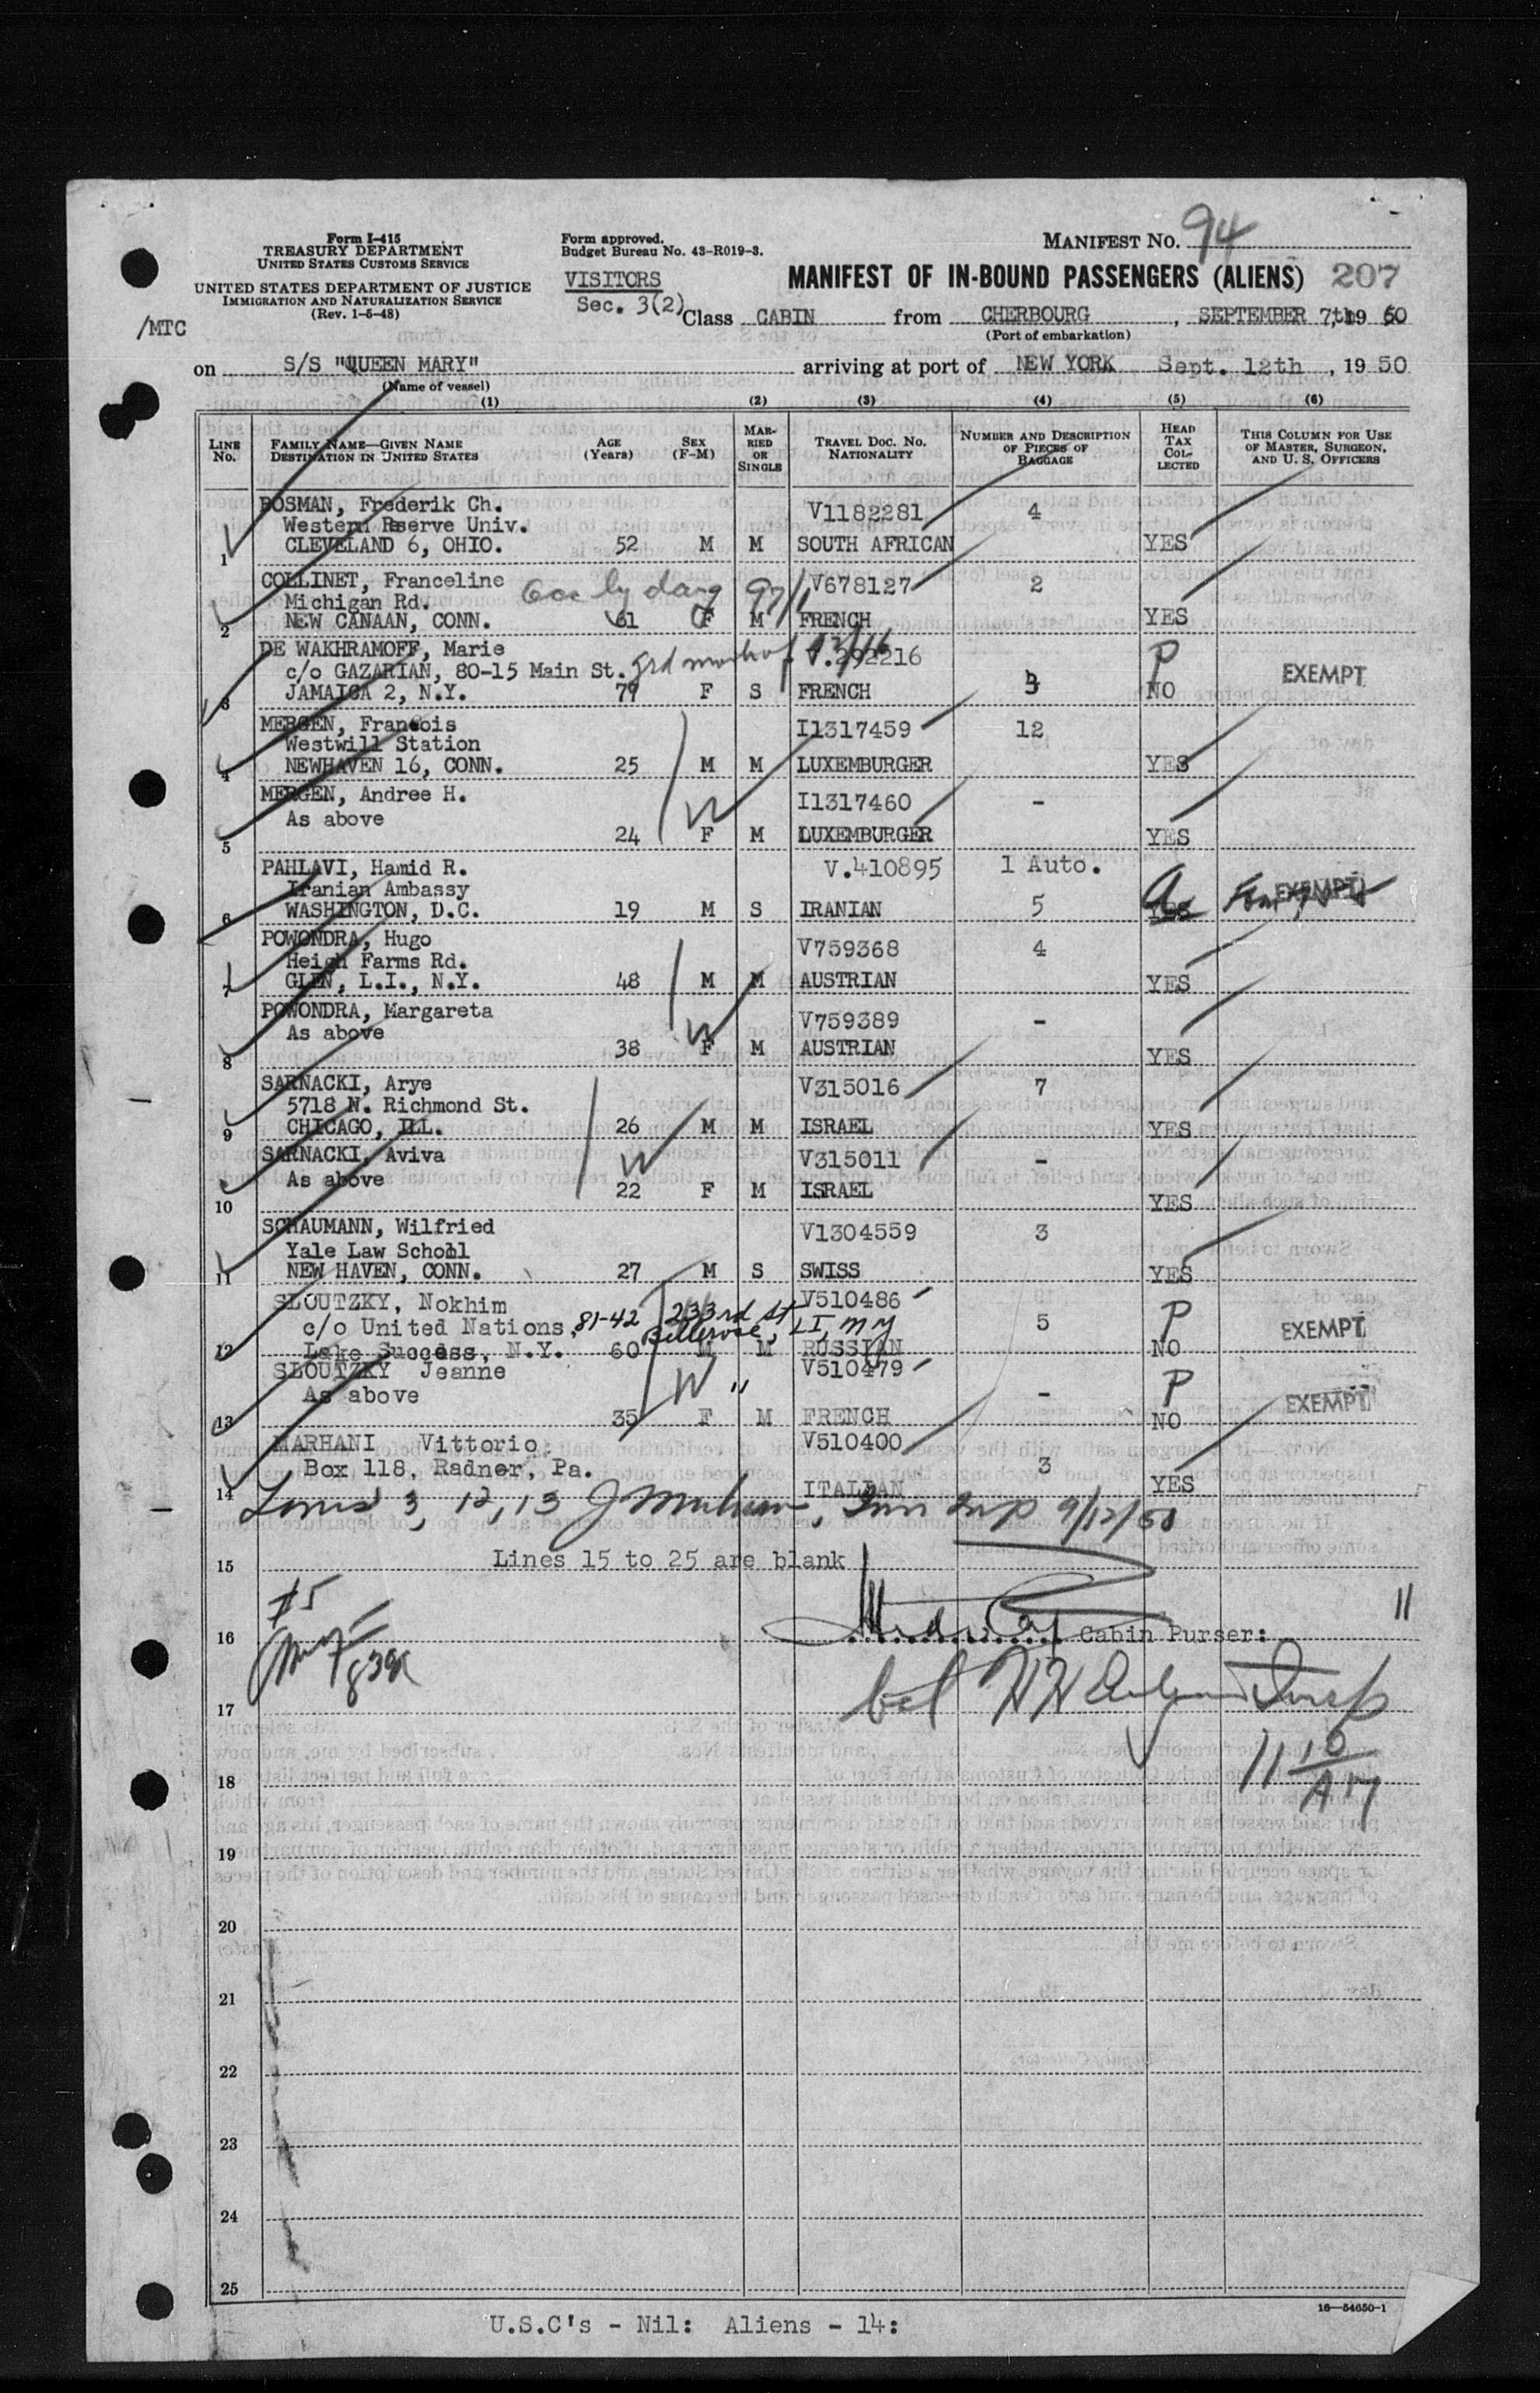 Form I-415
TREASURY DEPARTMENT
UNITED STATES CUSTOMS SERVICE
UNITED STATES DEPARTMENT OF JUSTICE
IMMIGRATION AND NATURALIZATION SERVICE
(Rev. 1-5-48)
/MTC
Form approved.
Budget Bureau No. 43-R019-3.
VISITORS
Sec. 3(2)
MANIFEST NO. 94
MANIFEST OF IN-BOUND PASSENGERS (ALIENS) 207
Class CABIN from CHERBOURG, SEPTEMBER 7th, 19 50
(Port of embarkation)
on S/S "QUEEN MARY" arriving at port of NEW YORK Sept. 12th, 19 50
(Name of vessel)
(1) (2) (3) (4) (5) (6)
LINE No. FAMILY NAME—GIVEN NAME DESTINATION IN UNITED STATES AGE (Years) SEX (F-M) MARRIED OR SINGLE TRAVEL DOC. NO. NATIONALITY NUMBER AND DESCRIPTION OF PIECES OF BAGGAGE HEAD TAX COLLECTED THIS COLUMN FOR USE OF MASTER, SURGEON, AND U. S. OFFICERS
BOSMAN, Frederik Ch. V1182281 4
Western Rserve Univ.
1 CLEVELAND 6, OHIO. 52 M M SOUTH AFRICAN YES
COLLINET, Franceline V678127 2
Michigan Rd.
2 NEW CANAAN, CONN. 61 F M FRENCH YES
DE WAKHRAMOFF, Marie V.292216 P
c/o GAZARIAN, 80-15 Main St. EXEMPT
3 JAMAICA 2, N.Y. 79 F S FRENCH 3 NO
MERGEN, Francois I1317459 12
Westwill Station
4 NEWHAVEN 16, CONN. 25 M M LUXEMBURGER YES
MERGEN, Andree H. I1317460 -
As above W
5 24 F M LUXEMBURGER YES
PAHLAVI, Hamid R. V.410895 1 Auto.
Iranian Ambassy EXEMPT
6 WASHINGTON, D.C. 19 M S IRANIAN 5 YES
POWONDRA, Hugo V759368 4
Heigh Farms Rd.
7 GLEN, L.I., N.Y. 48 M M AUSTRIAN YES
POWONDRA, Margareta V759389 -
As above W
8 38 F M AUSTRIAN YES
SARNACKI, Arye V315016 7
5718 N. Richmond St.
9 CHICAGO, ILL. 26 M M ISRAEL YES
SARNACKI, Aviva W V315011 -
As above
10 22 F M ISRAEL YES
SCHAUMANN, Wilfried V1304559 3
Yale Law Scholl
11 NEW HAVEN, CONN. 27 M S SWISS YES
SLOUTZKY, Nokhim V510486
c/o United Nations, 81-42 233rd St Bellerose, LI, NY 5 P EXEMPT
12 Lake Success, N.Y. 60 M M RUSSIAN NO
SLOUTZKY Jeanne V510479
As above W " - P EXEMPT
13 35 F M FRENCH NO
MARHANI Vittorio V510400
Box 118, Radner, Pa. 3
14 ITALIAN YES
3, 12, 13 9/12/50
15 Lines 15 to 25 are blank
16 Cabin Purser: 11
17
18 11
19
20
21
22
23
24
25
16—54650-1
U.S.C's - Nil: Aliens - 14: